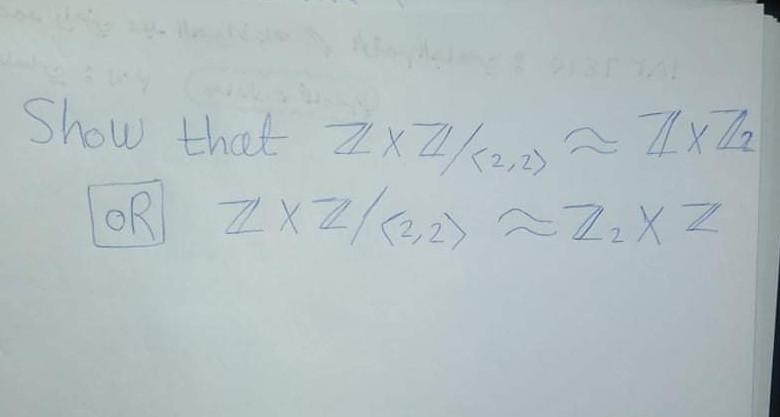 Show that ℤ×ℤ/<2,2> ≈ ℤ×ℤ₂
OR ℤ×ℤ/<2,2> ≈ ℤ₂×ℤ